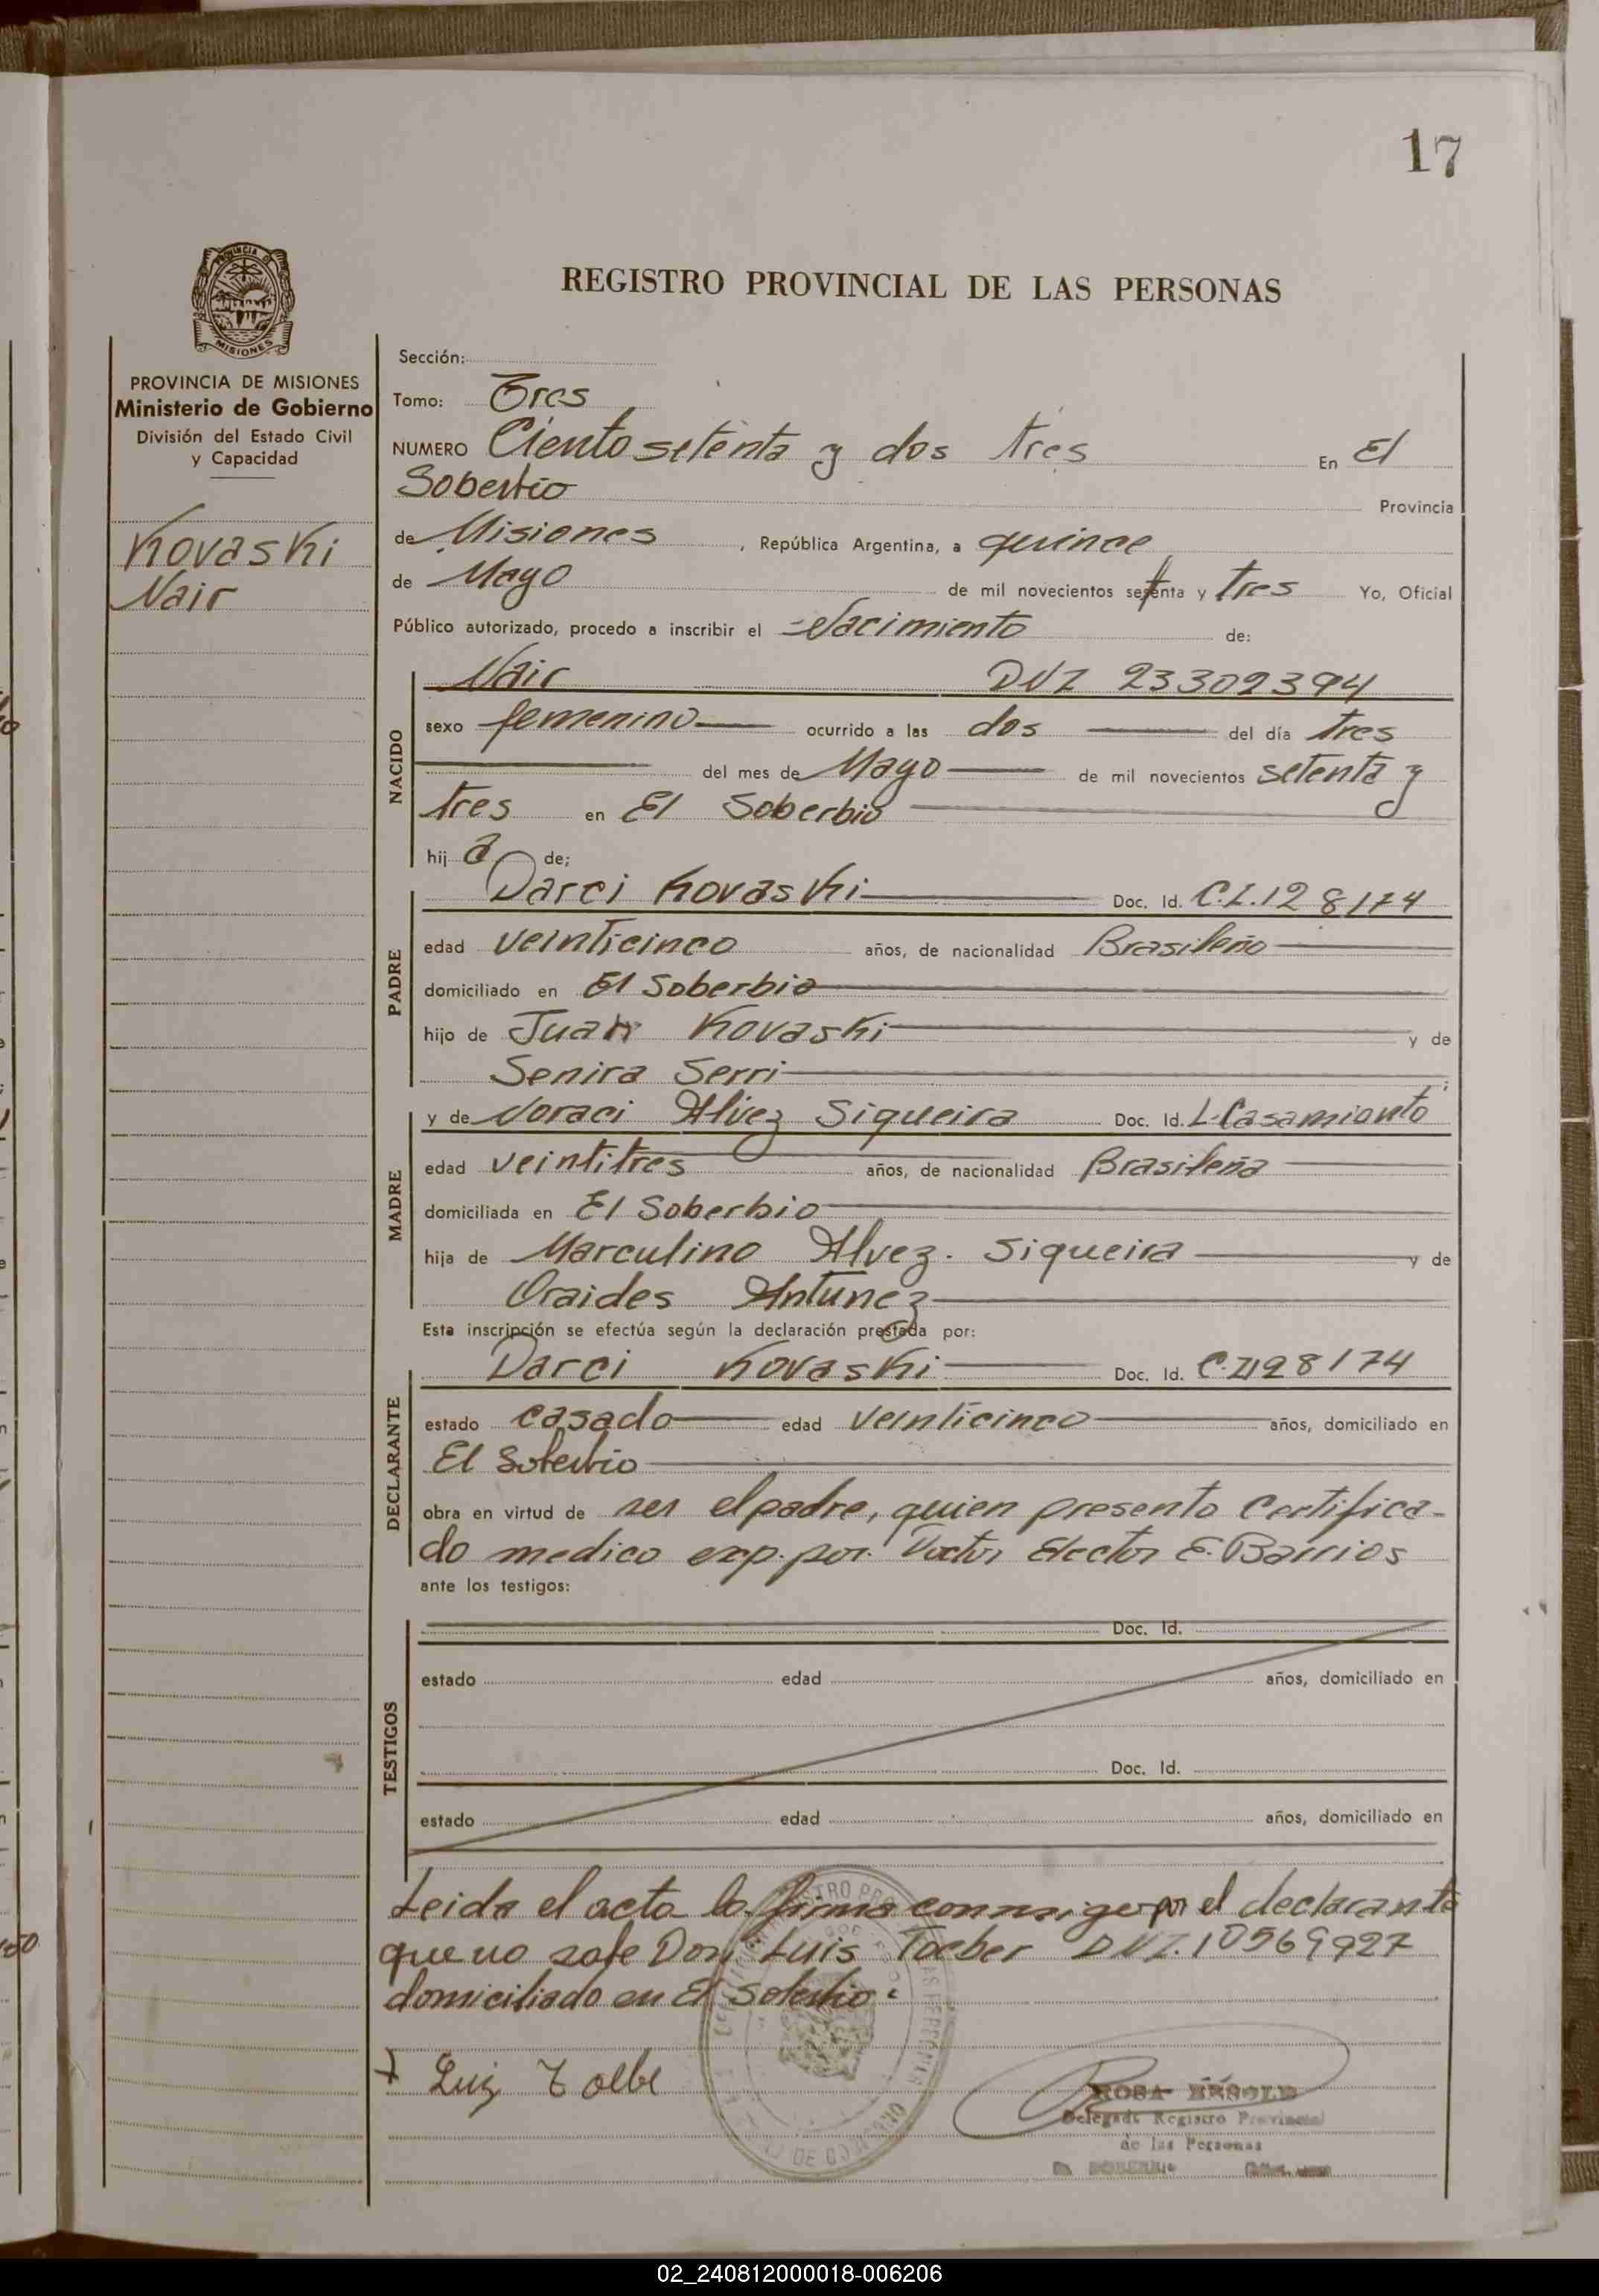 17
PROVINCIA DE MISIONES
Ministerio de Gobierno
División del Estado Civil
y Capacidad
Kovaski
Nair
REGISTRO PROVINCIAL DE LAS PERSONAS
Sección:
Tomo: Tres
NUMERO Ciento setenta y dos tres En El
Soberbio Provincia
de Misiones, República Argentina, a quince
de Mayo de mil novecientos setenta y tres Yo, Oficial
Público autorizado, procedo a inscribir el Nacimiento de:
NACIDO
Nair DNI 23302394
sexo femenino ocurrido a las dos del día tres
del mes de Mayo de mil novecientos setenta y
tres en El Soberbio
hij a de;
PADRE
Darci Kovaski Doc. Id. C.I. 128174
edad veinticinco años, de nacionalidad Brasileño
domiciliado en El Soberbio
hijo de Juan Kovaski y de
Senira Serri;
MADRE
y de Noraci Alvez Siqueira Doc. Id. L. Casamiento
edad veintitres años, de nacionalidad Brasileña
domiciliada en El Soberbio
hija de Marculino Alvez. Siqueira y de
Oraides Antunez
Esta inscripción se efectúa según la declaración prestada por:
DECLARANTE
Darci Kovaski Doc. Id. C.I 128174
estado casado edad veinticinco años, domiciliado en
El Soberbio
obra en virtud de ser el padre, quien presento Certifica-
do medico exp. por Doctor E. Barrios
ante los testigos:
TESTIGOS
Doc. Id.
estado edad años, domiciliado en
Doc. Id.
estado edad años, domiciliado en
Leida el acta la firma conmigo por el declarante
que no sabe Don Luis Toeber DNI. 10569927
domiciliado en El Soberbio.
Luiz Toelbe
ROSA
Delegada Registro Provincial
de las Personas
02_240812000018-006206